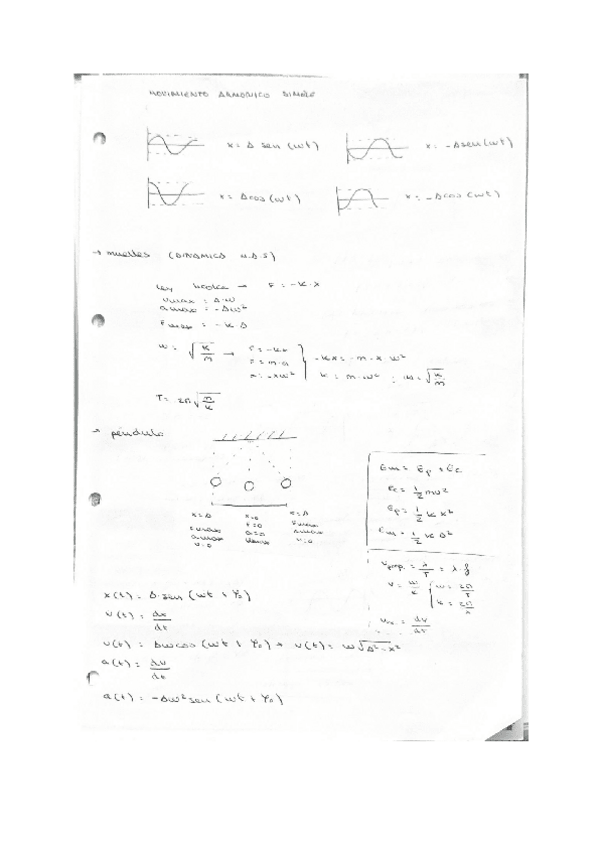 MOVIMIENTO ARMONICO SIMPLE
x = A sen (ωt)
x = -A sen (ωt)
x = A cos (ωt)
x = -A cos (ωt)
→ muelles (DINAMICA M.A.S)
Ley hooke → F = -K·x
vmax = A·ω
amax = -Aω²
Fmax = -K·A
ω = √(K/m) → F = -Kx
F = m·a
a = -xω²
-Kx = -m·x ω²
K = m·ω² ; ω = √(K/m)
T = 2π√(m/K)
→ péndulo
x = A
Fmax
amax
v=0
x=0
F=0
a=0
vmax
x=A
Fmax
amax
v=0
Em = Ep + Ec
Ec = 1/2 mv²
Ep = 1/2 K x²
Em = 1/2 K A²
vprop. = λ/T = λ·f
v = ω/K
ω = 2π/T
K = 2π/λ
= dv/dt
x(t) = A·sen (ωt + φ₀)
v(t) = dx/dt
v(t) = Aω cos (ωt + φ₀) → v(t) = ω√A²-x²
a(t) = dv/dt
a(t) = -Aω² sen (ωt + φ₀)